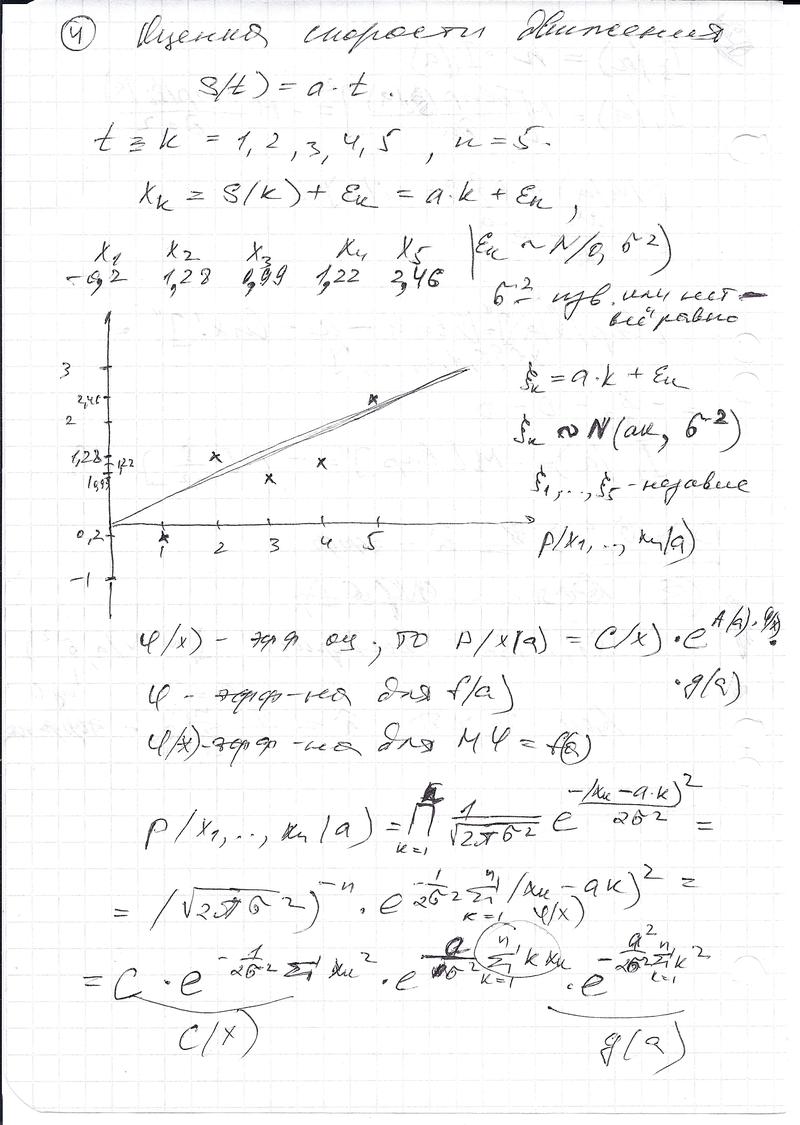 ④ Оценка скорости движения
S(t) = a·t.
t ≡ k = 1, 2, 3, 4, 5 , n = 5.
x_k = S(k) + ε_k = a·k + ε_k ,
x_1 x_2 x_3 x_4 x_5 | ε_k ~ N(0, σ²)
-0,2 1,28 0,99 1,22 2,46
σ² - изв. или нет - всё равно
3
2,46
2
1,28
1,22
0,99
0,2
-1
1 2 3 4 5
ξ_k = a·k + ε_k
ξ_k ~ N(ak, σ²)
ξ_1, .., ξ_5 - независ
p(x_1, .., x_n|a)
φ(x) - эфф оц, то p(x|a) = C(x) · e^{A(a)·φ(x)} ·
· g(a)
φ - эфф-на для f(a)
φ(x) - эфф-на для Mφ = f(a)
p(x_1, .., x_n|a) = ∏_{k=1} 1/√(2πσ²) e^{-(x_k - a·k)²/2σ²} =
= (√(2πσ²))^{-n} · e^{-1/2σ² Σ_{k=1}^{n} (x_k - ak)²} =
φ(x)
= C · e^{-1/2σ² Σ x_k²} · e^{a/σ² Σ_{k=1}^{n} k x_k} · e^{-a²/2σ² Σ_{k=1}^{n} k²}
C(x) g(a)